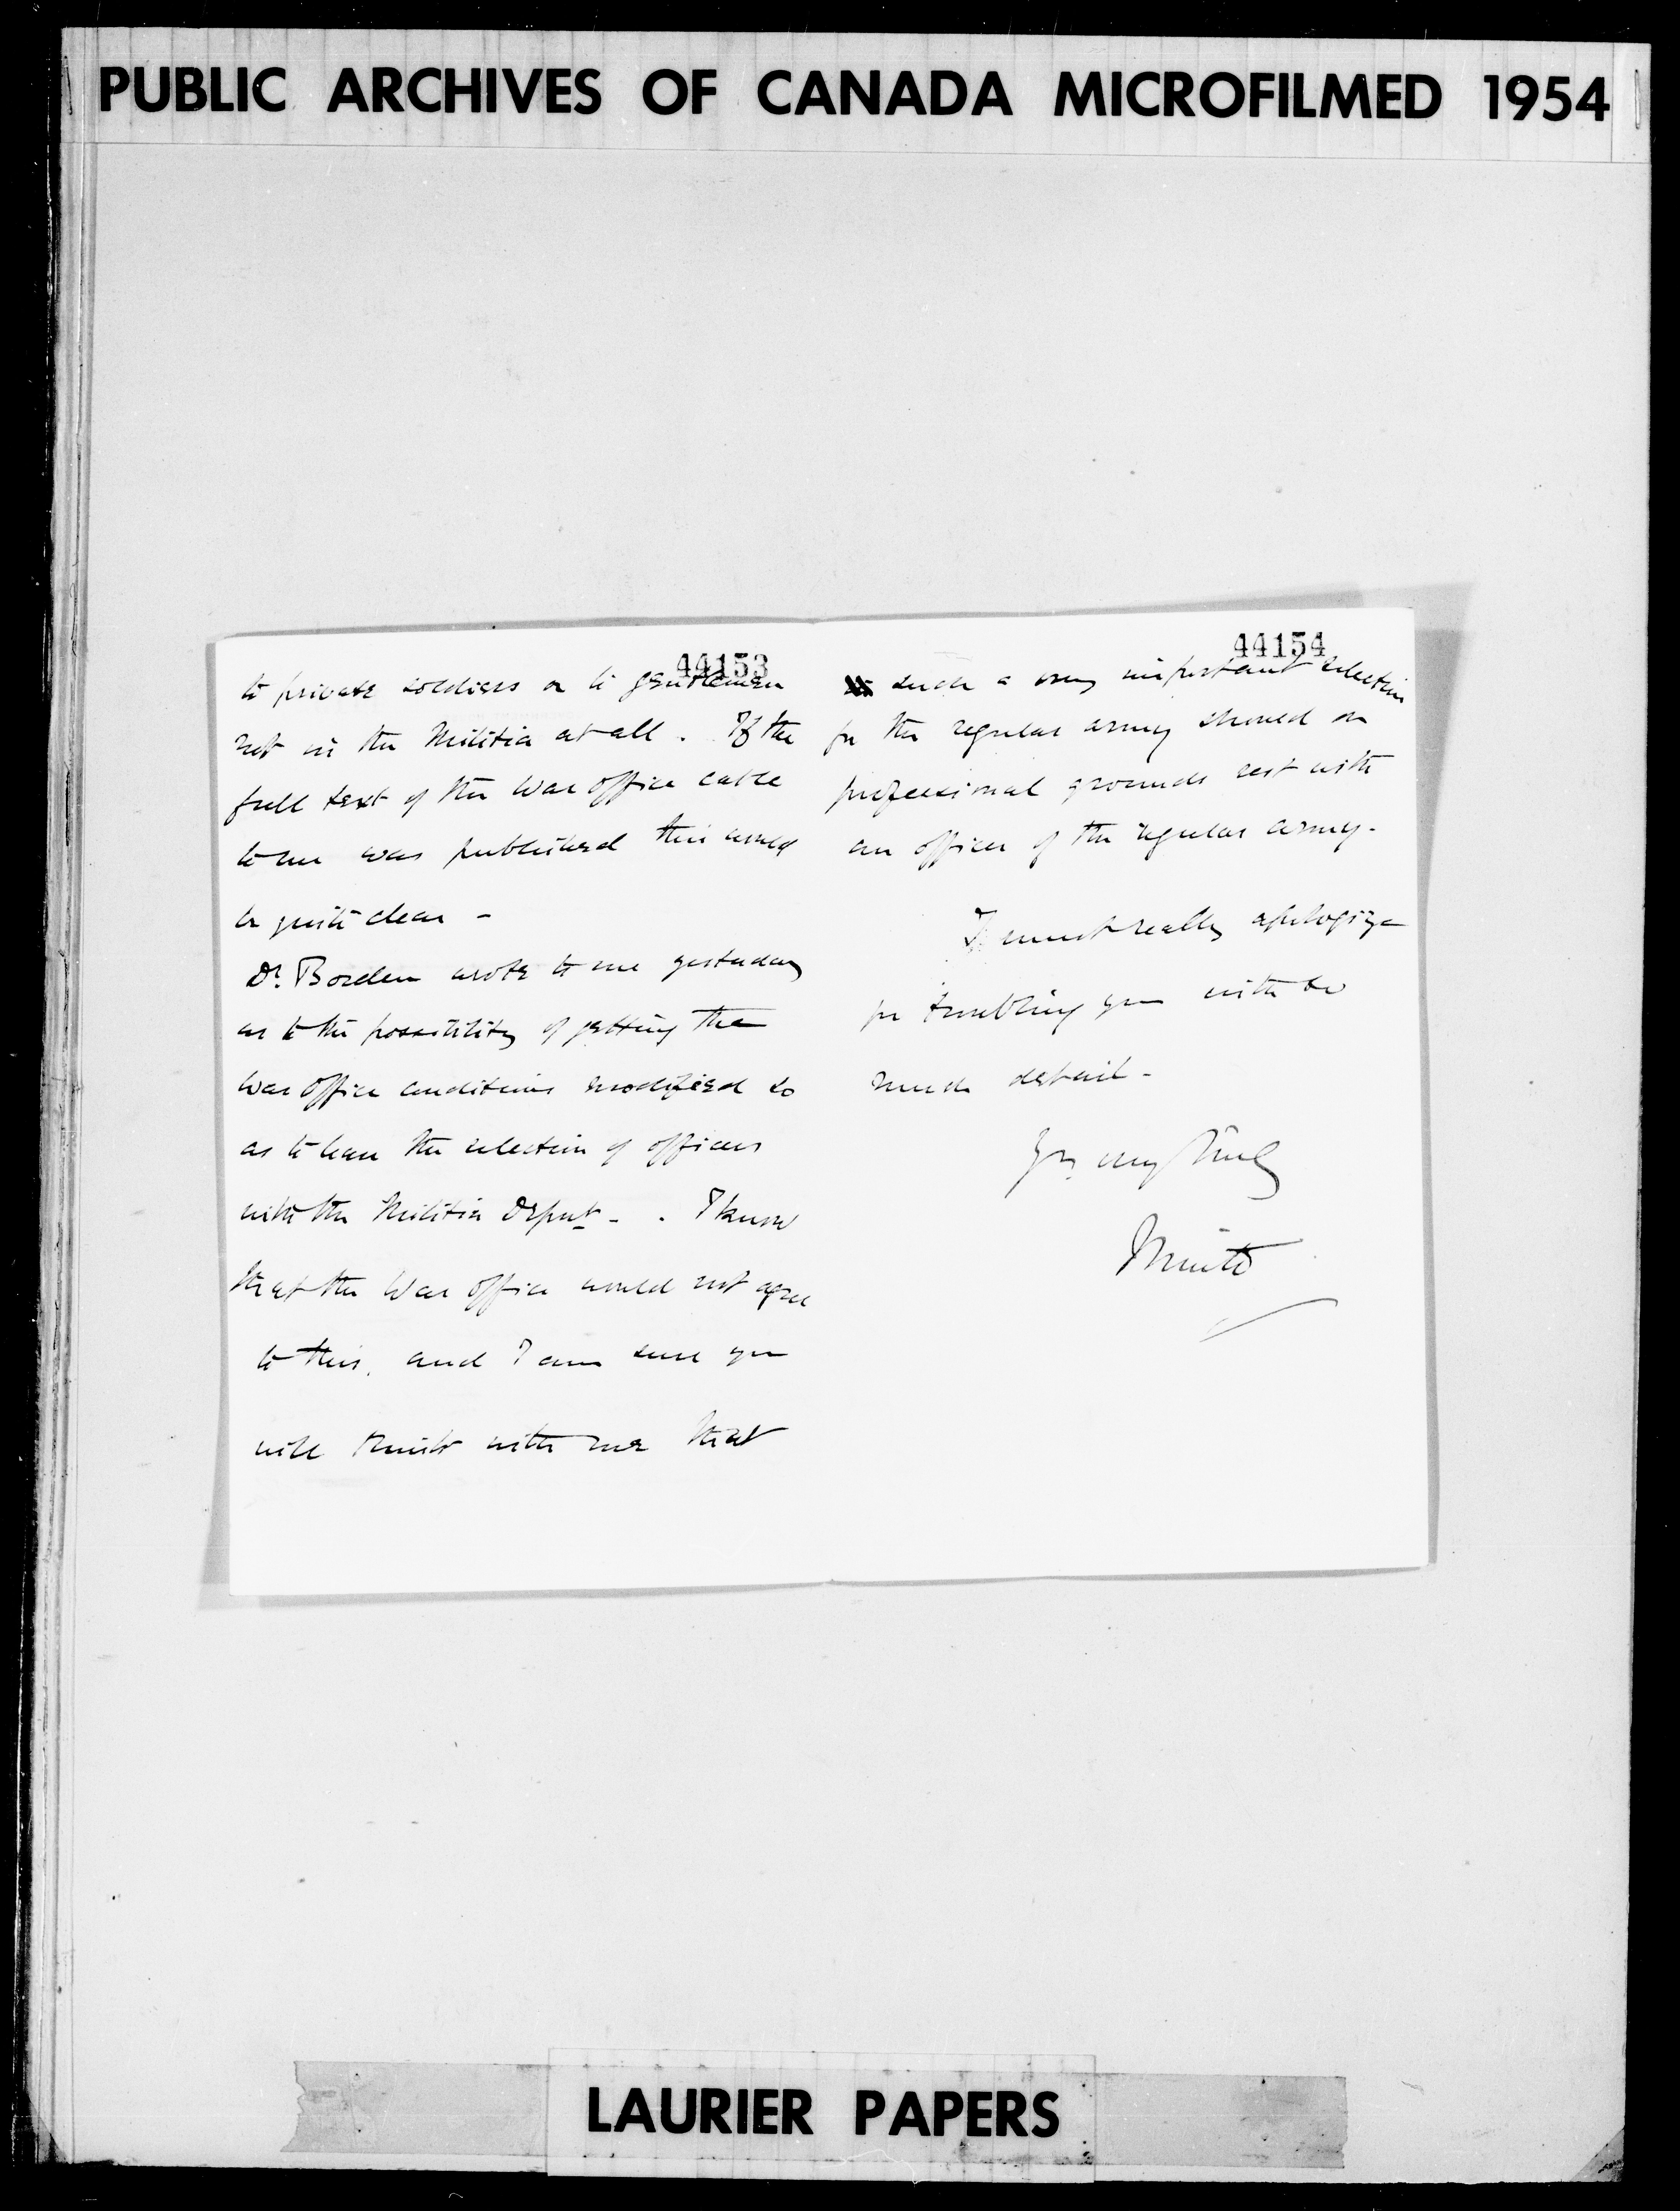 PUBLIC ARCHIVES OF CANADA MICROFILMED 1954
44153
to private soldiers or to gentlemen
not in the Militia at all. If the
full text of the War Office cable
to me was published this would
be quite clear -
Dr. Borden wrote to me yesterday
as to the possibility of getting the
War Office conditions modified so
as to leave the selection of officers
with the Militia Depart - . I know
that the War Office would not agree
to this, and I am sure you
will think with me that
44154
such a very important selection
for the regular army should on
professional grounds rest with
an officer of the regular army.
I must really apologize
for troubling you with so
much detail -
Yrs very truly
Minto
LAURIER PAPERS